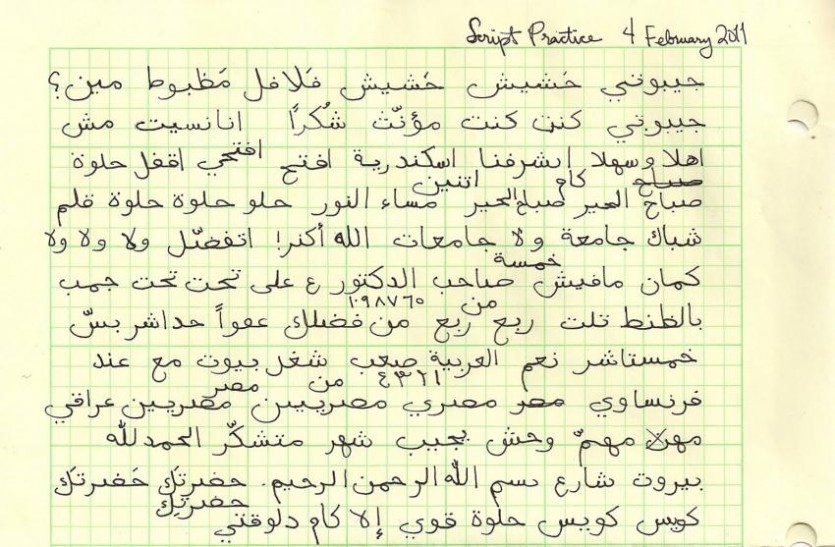 Script Practice 4 February 2011
جيبوتي حَشيش حَشيش فَلافل مَظبوط مين؟
جيبوتي كنت كنت مؤنّث شُكراً انانسيت مش
اهلا وسهلا اتشرفنا اسكندرية افتح افتحي اقفل حلوة
صباح كام اتنين
صباح الخير صباح الخير مساء النور حلو حلوة حلوة قلم
شباك جامعة ولا جامعات الله أكبر! اتفضّل ولا ولا ولا
خمسة
كمان مافيش صاحب الدكتور ع على تحت تحت جمب
١٠٩٨٧٦٥ من
بالظنط تلت ربع ربع من فضلك عفواً حداشر بسّ
خمستاشر نعم العربية صعب شغل بيوت مع عند
٤٣٢١ من مصر
فرنساوي مصر مصري مصريين مصريين عراقي
مهمّ وحش يجيب شهر متشكّر الحمد لله
بيروت شارع بسم الله الرحمن الرحيم. حضرتَك حَضرتَك
حضرتِك
كويس كويس حلوة قوي إلا كام دلوقتي